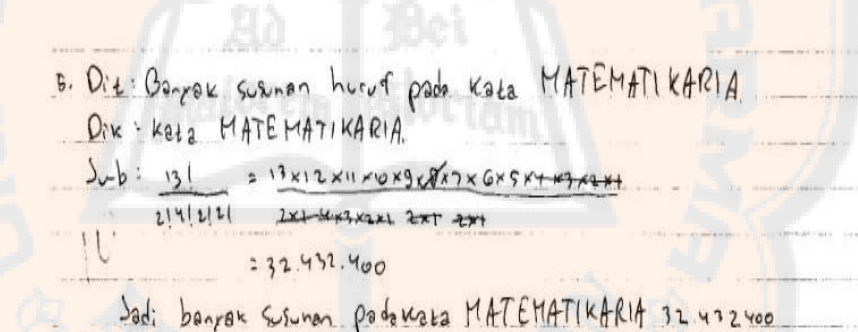 5. Dit : Banyak susunan huruf pada kata MATEMATIKARIA.
Dik : kata MATEMATIKARIA.
Jwb : 13! = 13x12x11x10x9x8x7x6x5x4x3x2x1
2!4!2!2! 2x1 4x3x2x1 2x1 2x1
= 32.432.400
Jadi banyak susunan pada kata MATEMATIKARIA 32.432400